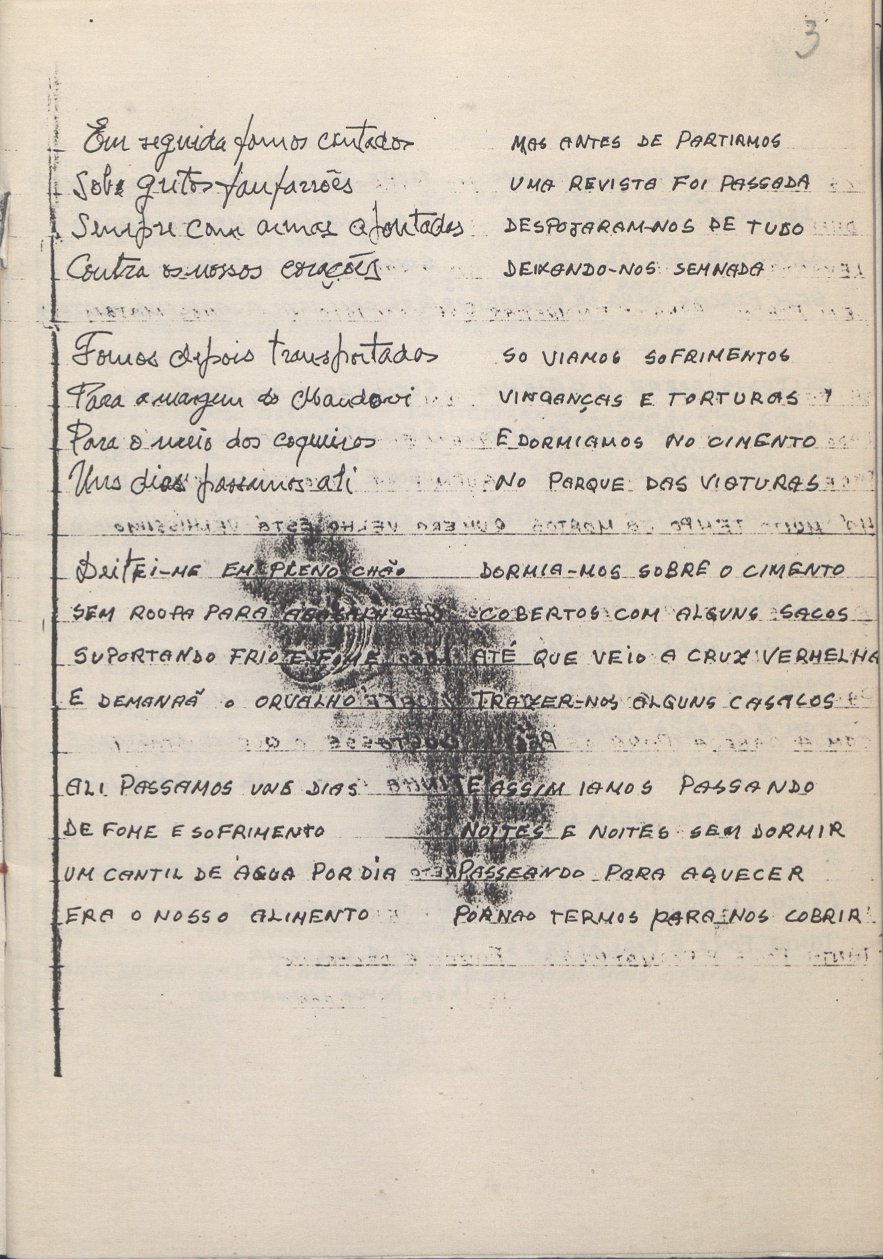 3
Em seguida fomos contados
Sobe gritos fanfarrões
Sempre com armas apontadas
Contra os nossos corações
Fomos depois transportados
Para a margem do Mandovi
Para o meio dos coqueiros
Uns dias passamos ali
Deitei-ME EM PLENO CHÃO
SEM ROOPA PARA
SUPORTANDO FRIO E FOME
E DEMANAÃ O ORVALHO
ALI PASSAMOS UNS DIAS
DE FOME E SOFRIMENTO
UM CANTIL DE ÀGUA POR DIA
ERA O NOSSO ALIMENTO
MAS ANTES DE PARTIRMOS
UMA REVISTA FOI PASSADA
DESPOJARAM-NOS DE TUDO
DEIXANDO-NOS SEMNADA
SO VIAMOS SOFRIMENTOS
VINGANÇAS E TORTURAS
E DORMIAMOS NO CIMENTO
NO PARQUE DAS VIATURAS
DORMIA-MOS SOBRE O CIMENTO
COBERTOS COM ALGUNS SACOS
ATÉ QUE VEIO A CRUX VERMELHA
TRAXER-NOS ALGUNS CASACOS
E ASSIM IAMOS PASSANDO
NOITES E NOITES SEM DORMIR
PASSEANDO PARA AQUECER
POR NAO TERMOS PARA NOS COBRIR